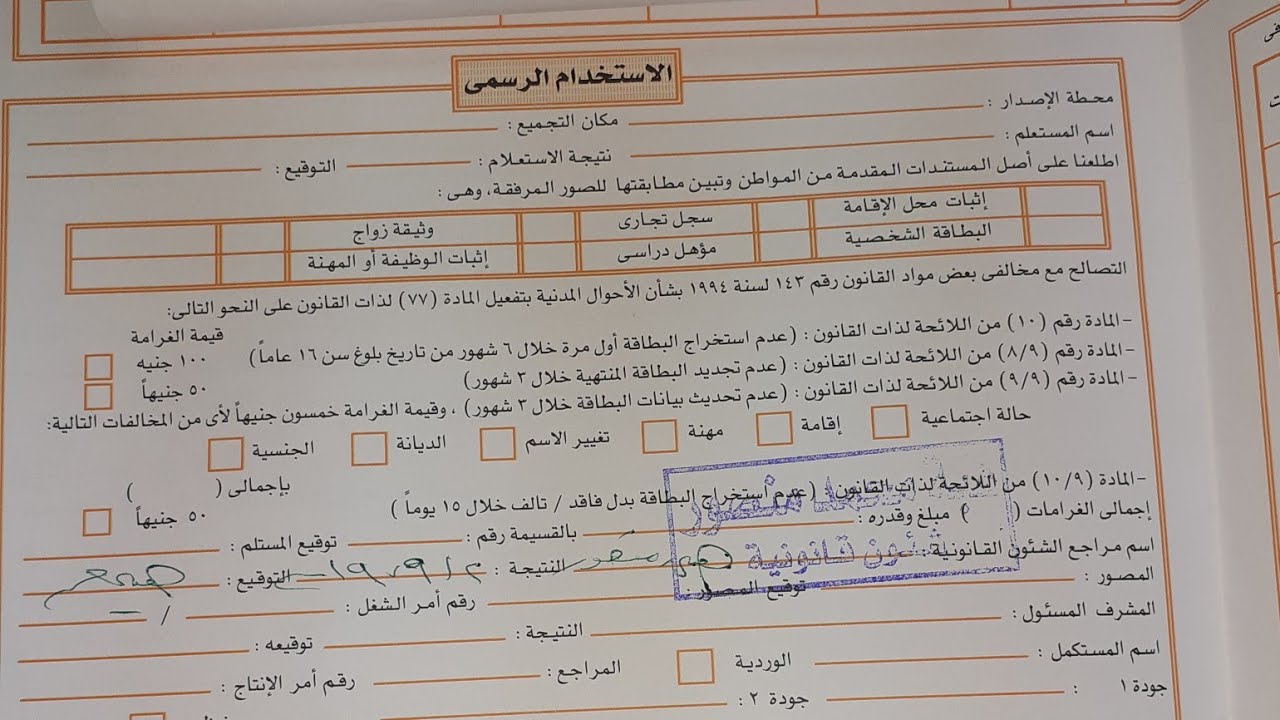 الاستخدام الرسمى
محطة الإصدار : مكان التجميع :
اسم المستعلم : نتيجة الاستعلام : التوقيع :
اطلعنا على أصل المستندات المقدمة من المواطن وتبين مطابقتها للصور المرفقة، وهى :
إثبات محل الإقامة سجل تجارى وثيقة زواج
البطاقة الشخصية مؤهل دراسى إثبات الوظيفة أو المهنة
التصالح مع مخالفى بعض مواد القانون رقم ١٤٣ لسنة ١٩٩٤ بشأن الأحوال المدنية بتفعيل المادة (٧٧) لذات القانون على النحو التالى:
قيمة الغرامة
-المادة رقم (١٠) من اللائحة لذات القانون : (عدم استخراج البطاقة أول مرة خلال ٦ شهور من تاريخ بلوغ سن ١٦ عاماً) ١٠٠ جنيه
-المادة رقم (٨/٩) من اللائحة لذات القانون : (عدم تجديد البطاقة المنتهية خلال ٣ شهور) ٥٠ جنيهاً
-المادة رقم (٩/٩) من اللائحة لذات القانون : (عدم تحديث بيانات البطاقة خلال ٣ شهور) ، وقيمة الغرامة خمسون جنيهاً لأى من المخالفات التالية:
حالة اجتماعية إقامة مهنة تغيير الاسم الديانة الجنسية
بإجمالى ( )
-المادة (١٠/٩) من اللائحة لذات القانون : (عدم استخراج البطاقة بدل فاقد / تالف خلال ١٥ يوماً ) ٥٠ جنيهاً
إجمالى الغرامات ( ) مبلغ وقدره : بالقسيمة رقم : توقيع المستلم :
اسم مراجع الشئون القانونية : النتيجة : التوقيع :
المصور : توقيع المصور : رقم أمر الشغل :
المشرف المسئول : النتيجة : توقيعه :
اسم المستكمل : الوردية المراجع : رقم أمر الإنتاج :
جودة ١ : جودة ٢ :
منصور
شئون قانونية